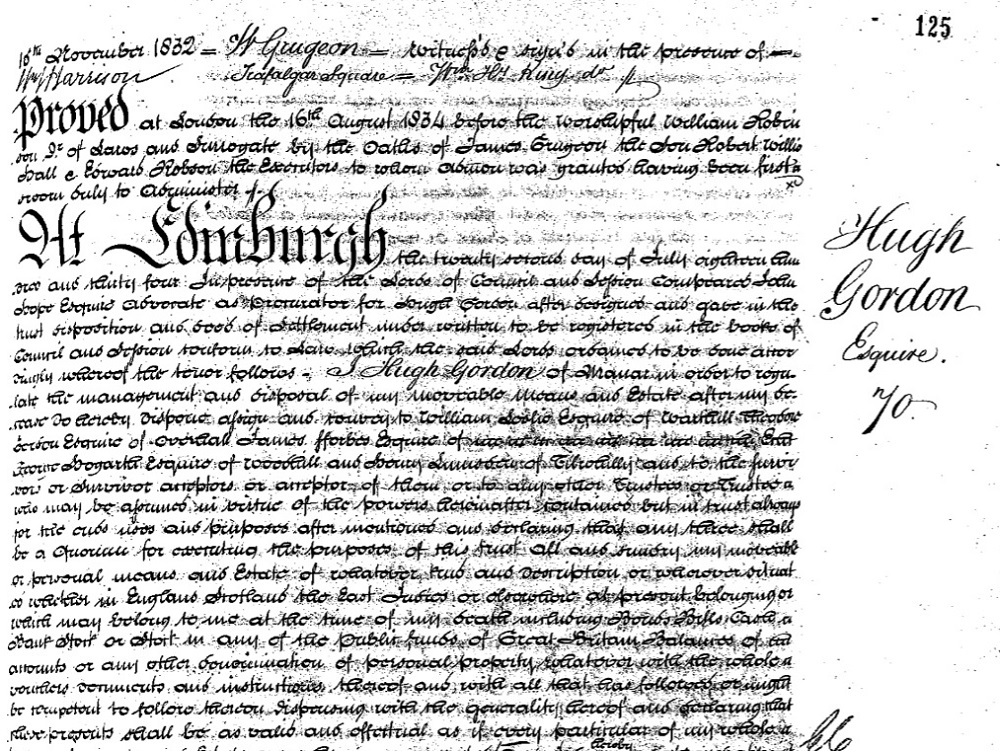 125
16th November 1832 = W Grugeon = witness's & sign'd in the presence of =
Wm Harrison Trafalgar Square = Wm Hy King do
Proved at London the 16th August 1834 before the Worshipful William Robin
son Dr of Laws and Surrogate by the Oaths of James Grugeon the Son Robert Willis
Hall & Edward Robson the Executors to whom Admon was granted having been first
sworn duly to Administer
At Edinburgh the twenty second day of July eighteen hun
dred and thirty four In presence of the Lords of Council and Session Compeared John
Hope Esquire Advocate as Procurator for Hugh Gordon after designed and gave in the
trust disposition and deed of Settlement under written to be registered in the books of
Council and Session conform to Law which the said Lords ordained to be done accor
dingly whereof the tenor follows - I Hugh Gordon of Manar in order to regu
late the management and disposal of my moveable Means and Estate after my de
cease Do hereby dispone assign and convey to William Leslie Esquire of Warthill
Gordon Esquire of Overhall James fforbes Esquire of
George Hogarth Esquire of Woodhill and Henry Lumsden of Tilwhilly and to the surviv
ors or Survivor acceptors or acceptor of them or to any other Trustee or Trustees
who may be assumed in virtue of the powers hereinafter contained but in trust always
for the ends uses and purposes after mentioned and declaring that any three shall
be a Quorum for executing the purposes of this trust All and sundry my moveable
or personal means and Estate of whatever kind and description or wherever situat
ed whether in England Scotland the East Indies or elsewhere at present belonging or
which may belong to me at the time of my death including Bonds Bills Cash
Bank Stock or Stock in any of the Public funds of Great Britain Balances of
accounts or any other denomination of personal property whatever with the whole
vouchers documents and instructions thereof and with all that has followed or might
be competent to follow thereon dispensing with the generality hereof and declaring that
these presents shall be as valid and effectual as if every particular of my whole
hereby
Hugh
Gordon
Esquire.
70